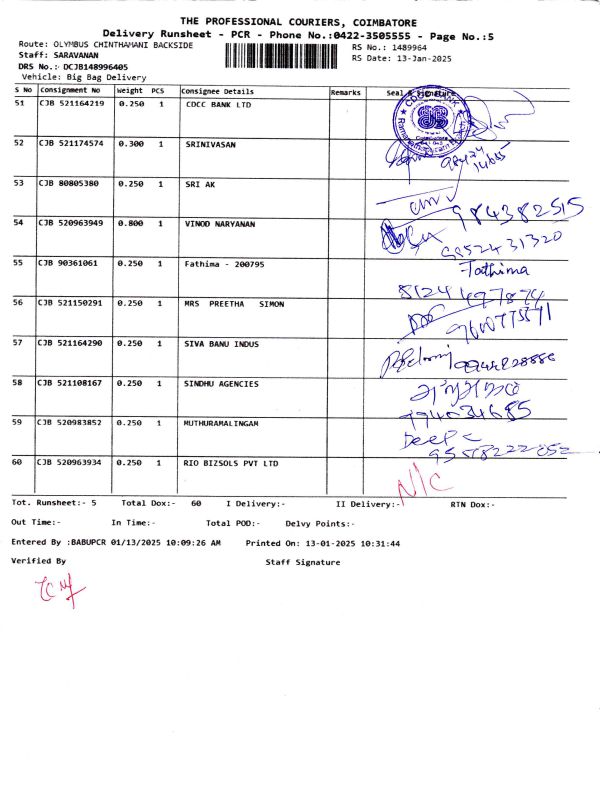 THE PROFESSIONAL COURIERS, COIMBATORE
Delivery Runsheet - PCR - Phone No.:0422-3505555 - Page No.:5
Route: OLYMBUS CHINTHAMANI BACKSIDE RS No.: 1489964
Staff: SARAVANAN RS Date: 13-Jan-2025
DRS No.: DCJB148996405
Vehicle: Big Bag Delivery
S No Consignment No Weight PCS Consignee Details Remarks Seal & Signature
51 CJB 521164219 0.250 1 CDCC BANK LTD
CDCC BANK
52 CJB 521174574 0.300 1 SRINIVASAN
53 CJB 80805380 0.250 1 SRI AK
984382515
54 CJB 520963949 0.800 1 VINOD NARYANAN
9952431320
55 CJB 90361061 0.250 1 Fathima - 200795 Fathima
8124497874
56 CJB 521150291 0.250 1 MRS PREETHA SIMON
57 CJB 521164290 0.250 1 SIVA BANU INDUS
58 CJB 521108167 0.250 1 SINDHU AGENCIES
59 CJB 520983852 0.250 1 MUTHURAMALINGAM
60 CJB 520963934 0.250 1 RIO BIZSOLS PVT LTD N/C
Tot. Runsheet:- 5 Total Dox:- 60 I Delivery:- II Delivery:- RTN Dox:-
Out Time:- In Time:- Total POD:- Delvy Points:-
Entered By :BABUPCR 01/13/2025 10:09:26 AM Printed On: 13-01-2025 10:31:44
Verified By Staff Signature